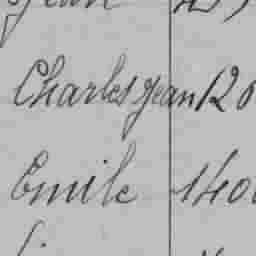 Charles Jean 120
Emile 140